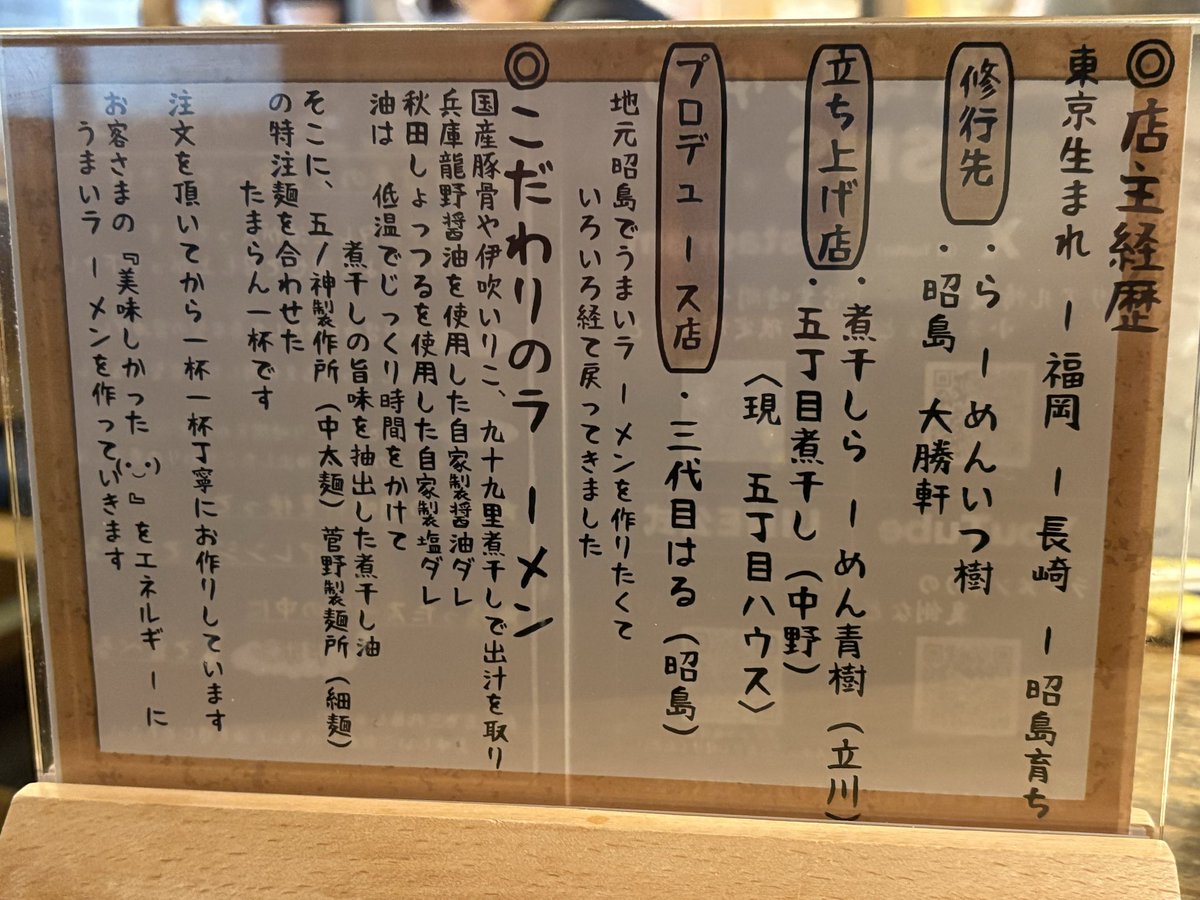 ◎店主経歴
東京生まれ ー 福岡 ー 長崎 ー 昭島育ち
修行先
・らーめんいつ樹
・昭島 大勝軒
立ち上げ店
・煮干しらーめん青樹(立川)
・五丁目煮干し(中野)
〈現 五丁目ハウス〉
プロデュース店
・三代目はる(昭島)
地元昭島でうまいラーメンを作りたくて
いろいろ経て戻ってきました
◎こだわりのラーメン
国産豚骨や伊吹いりこ、九十九里煮干しで出汁を取り
兵庫龍野醤油を使用した自家製醤油ダレ
秋田しょっつるを使用した自家製塩ダレ
油は 低温でじっくり時間をかけて
煮干しの旨味を抽出した煮干し油
そこに、五ノ神製作所(中太麺)菅野製麺所(細麺)
の特注麺を合わせた
たまらん一杯です
注文を頂いてから一杯一杯丁寧にお作りしています
お客さまの『美味しかった(・◡・)』をエネルギーに
うまいラーメンを作っていきます